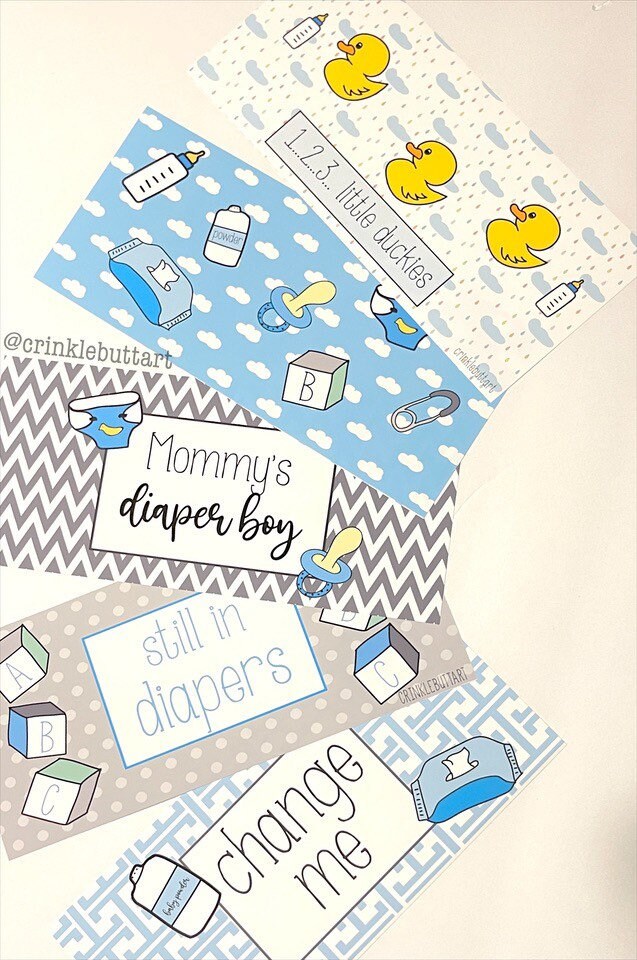 1...2...3... little duckies
crinklebuttart
powder
B
@crinklebuttart
Mommy's
diaper boy
still in
diapers
A
B
C
B
C
CRINKLEBUTTART
change
me
baby powder